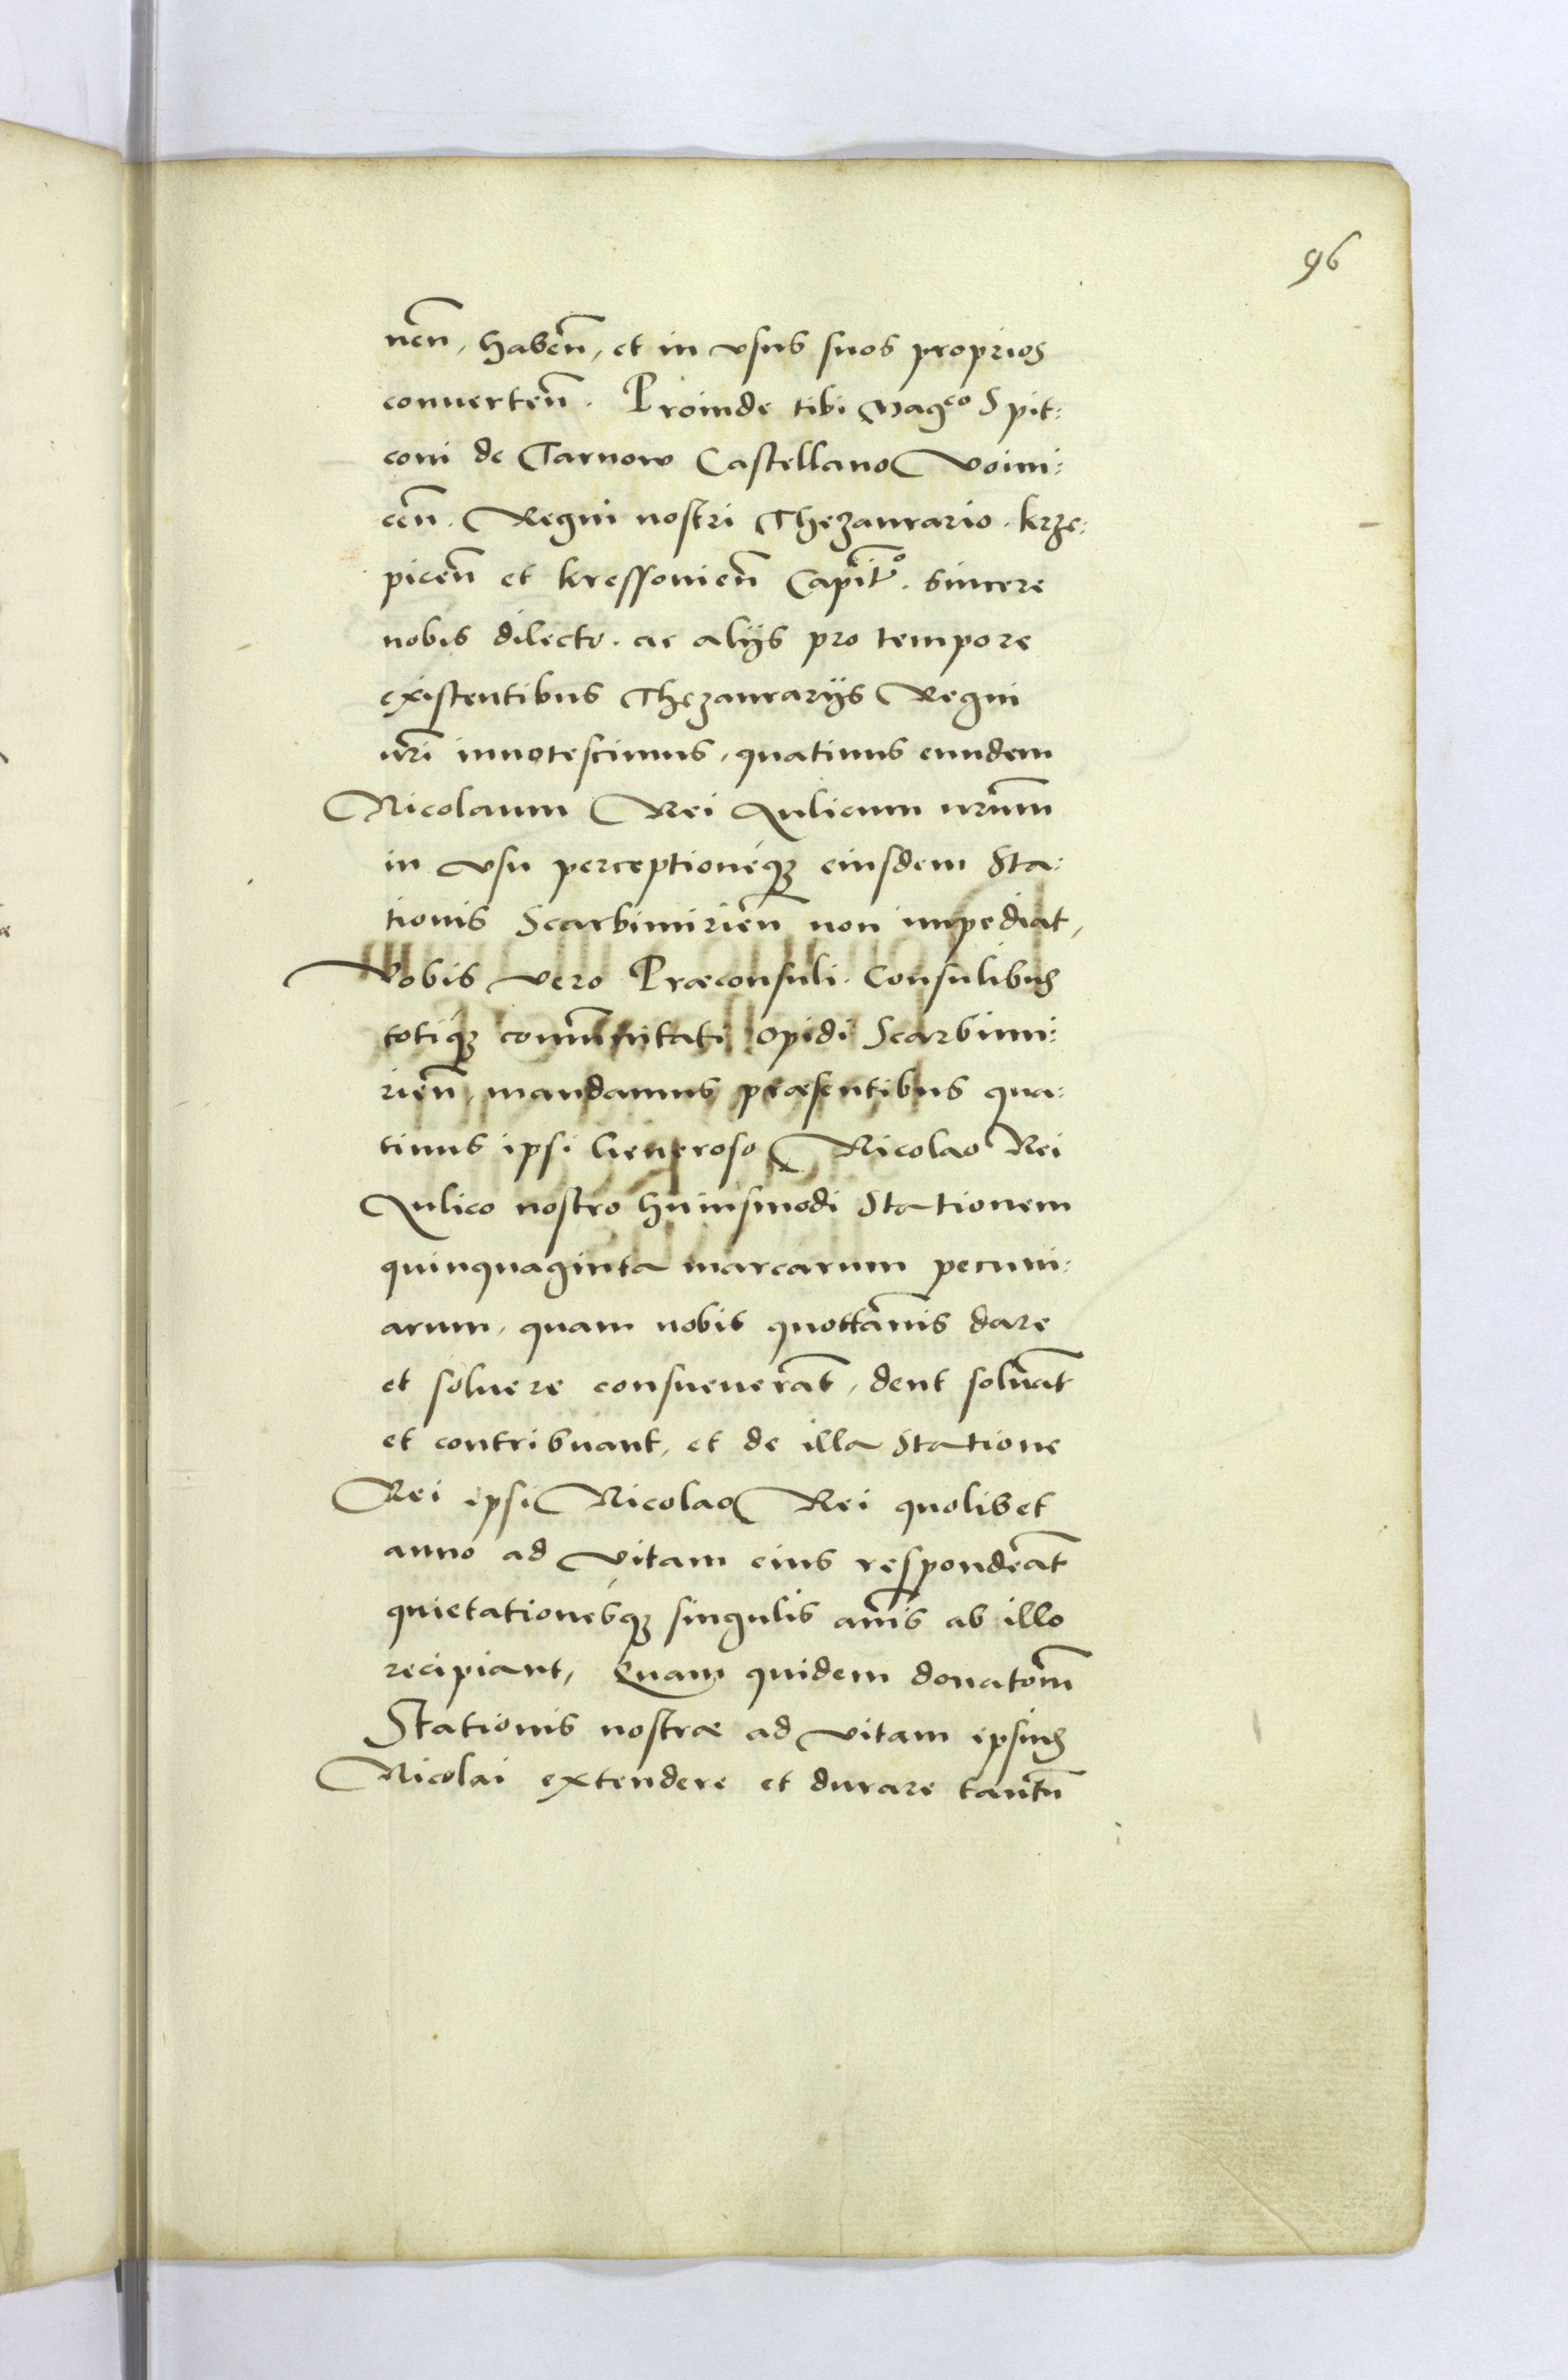 96
neñ, habeñ, et in vsus suos proprios
conuerteñ. Proinde tibi Mag^co Spit:
coni de Tarnow Castellano Voini:
ceñ. Regni nostri Thezaurario. krze:
piceñ et kressonieñ Capit^o. sincere
nobis dilecto. ac alijs pro tempore
existentibus Thezaurarijs Regni
nr̃i innotescimus, quatinus eundem
Nicolaum Rei Aulicum nr̃um
in vsu perceptionéqꝫ eiusdem Sta:
tionis Scarbimirieñ non impediat,
Vobis vero Præconsuli. Consulibus
totiqꝫ com̃unitati Opidi Scarbimi:
rieñ, mandamus præsentibus qua:
tinus ipsi Generoso Nicolao Rei
Aulico nostro huiusmodi Stationem
quinquaginta marcarum pecuni:
arum, quam nobis quottañis dare
et soluere consueuerãt, dent soluãt
et contribuant, et de illa Statione
Rei ipsi Nicolao Rei quolibet
anno ad vitam eius respondeãt
quietationésqꝫ singulis añis ab illo
recipiant, Quam quidem donatõm
Stationis nostræ ad vitam ipsius
Nicolai extendere et durare tantũ